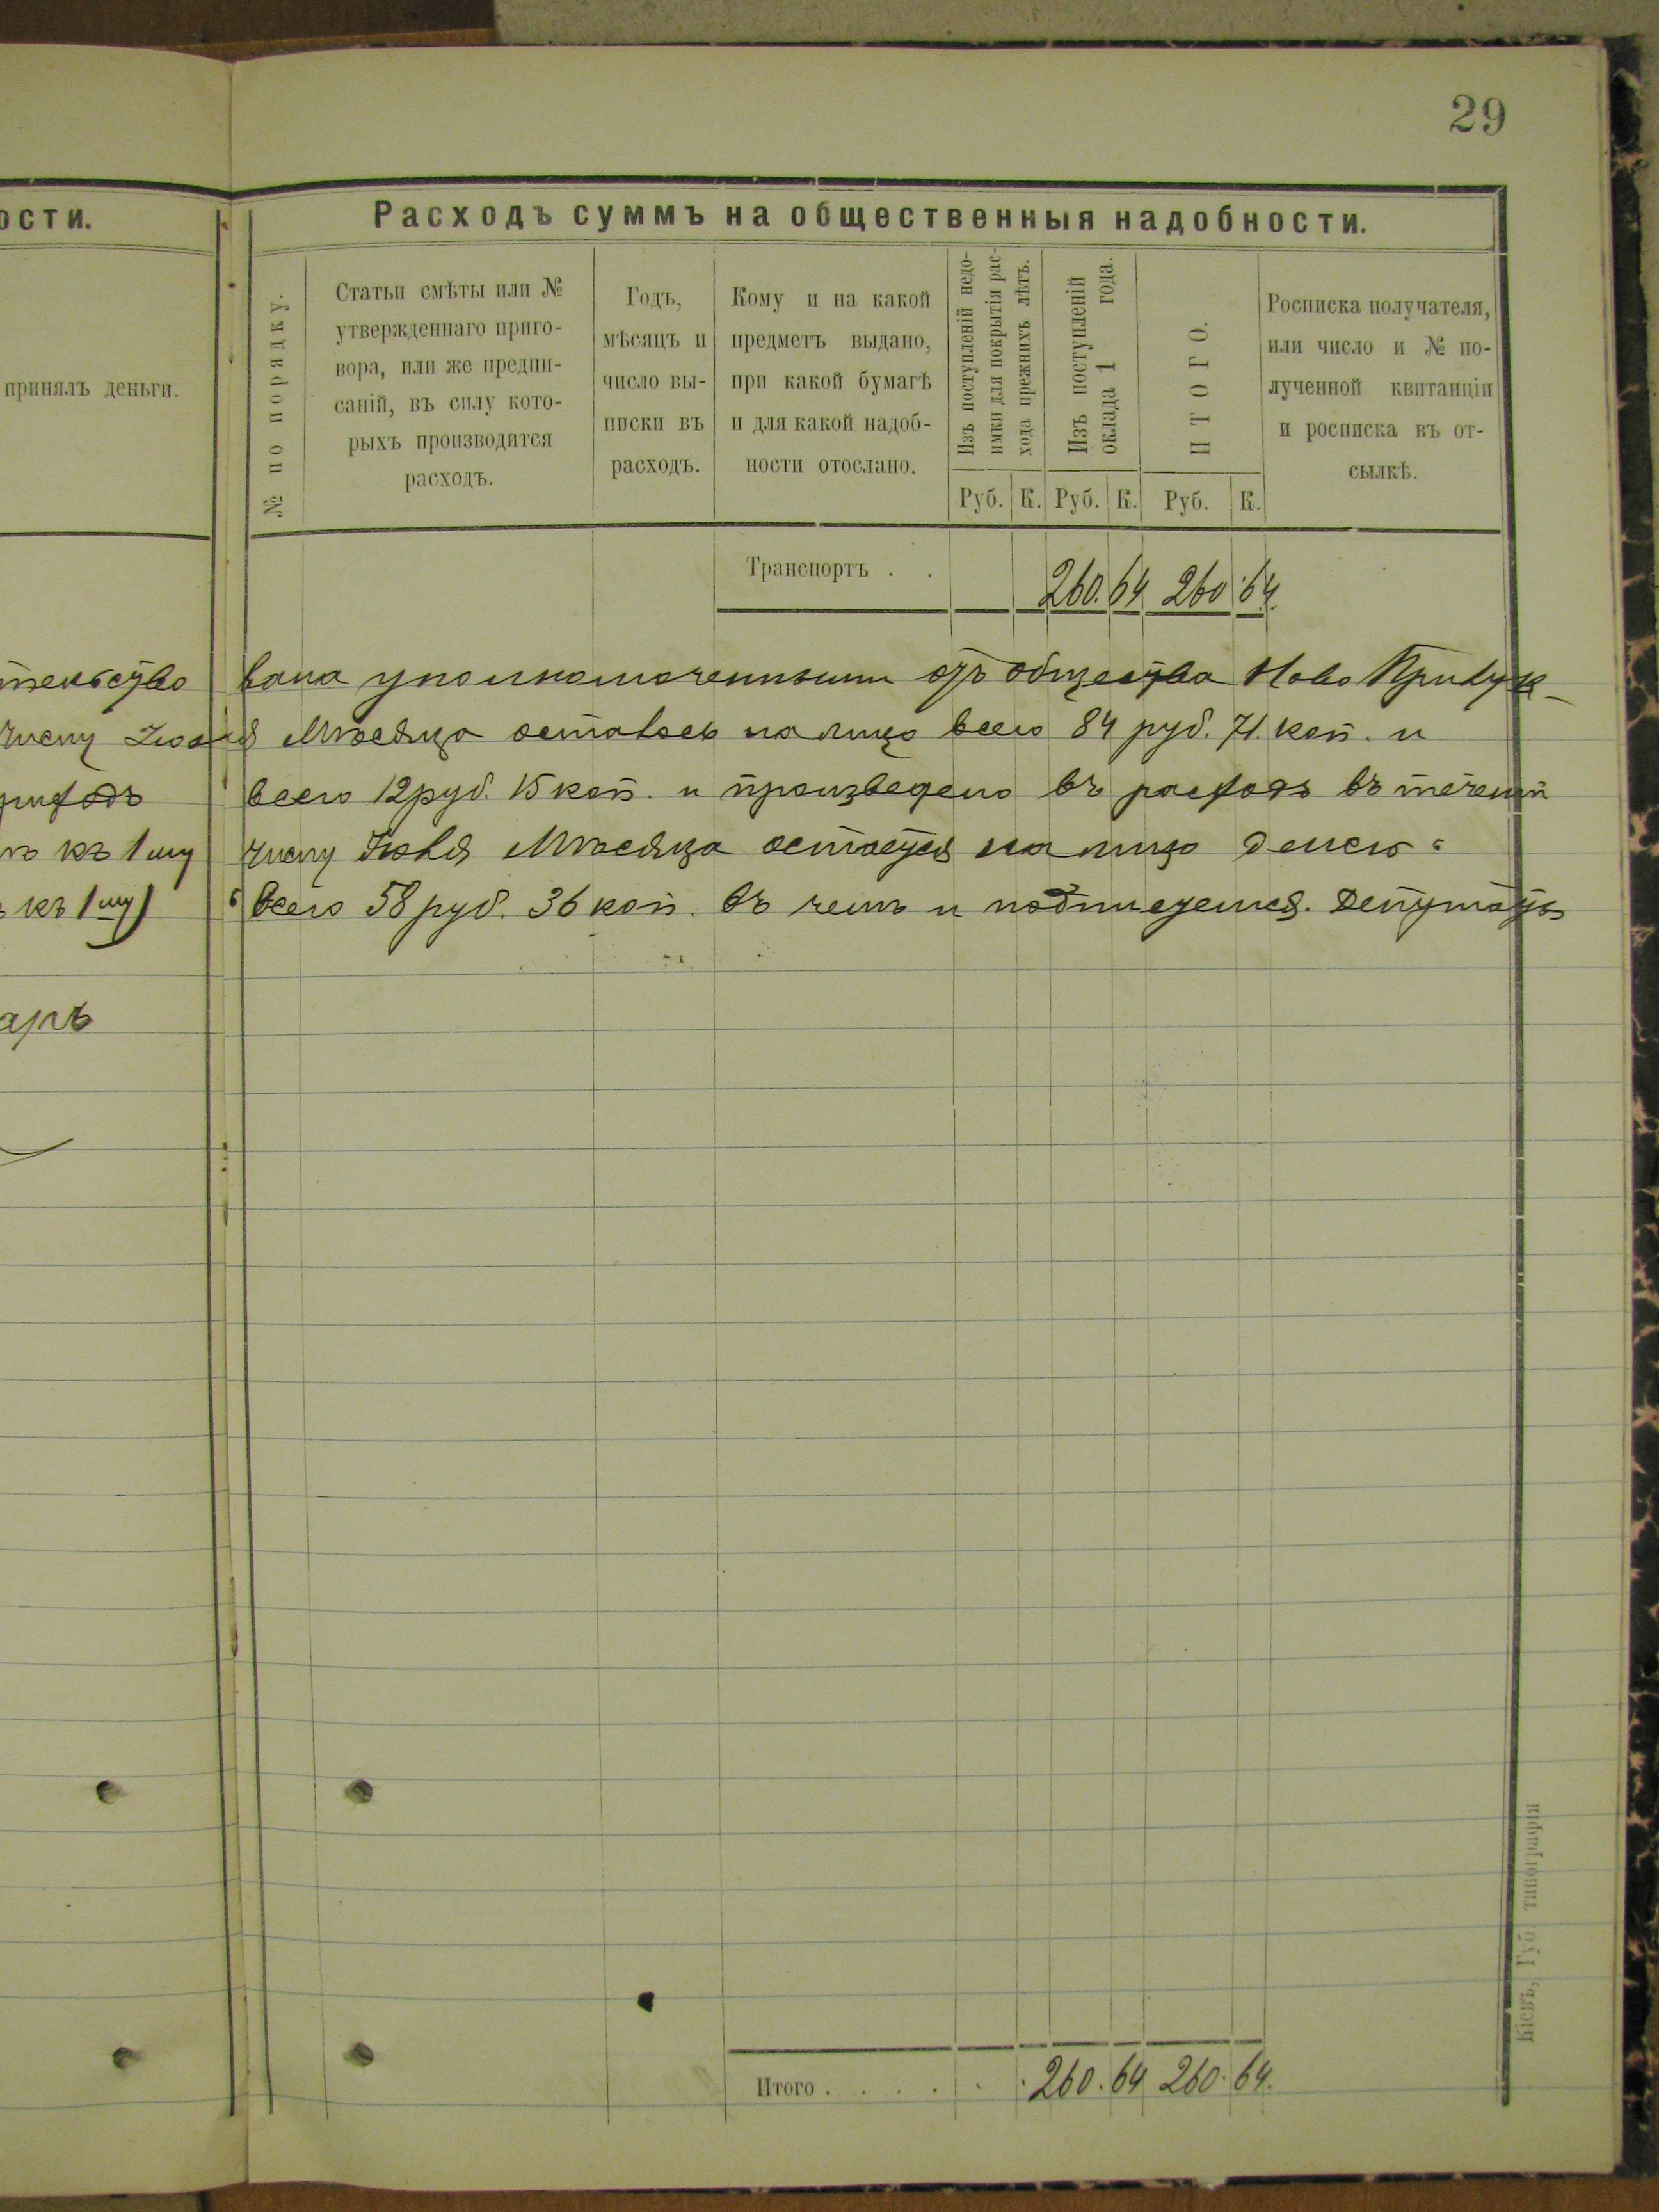 29
ости.
Расходъ суммъ на общественныя надобности.
принялъ деньги.
№ по порядку.
Статьи смѣты или №
утвержденнаго приго-
вора, или же предпи-
саній, въ силу кото-
рыхъ производится
расходъ.
Годъ,
мѣсяцъ и
число вы-
писки въ
расходъ.
Кому и на какой
предметъ выдано,
при какой бумагѣ
и для какой надоб-
ности отослано.
Изъ поступленій недо-
имки для покрытія рас-
хода прежнихъ лѣтъ.
Изъ поступленій
оклада 1 года.
ИТОГО.
Росписка получателя,
или число и № по-
лученной квитанціи
и росписка въ от-
сылкѣ.
Руб. К. Руб. К. Руб. К.
Транспортъ . . 260. 64 260 64.
вана уполномоченными отъ общества Ново Прилук-
числу Мѣсяца осталось на лицо всего 84 руб. 71. коп. и
приходъ всего 12 руб. 15 коп. и произведено въ расходъ въ теченіи
къ 1му числу Мѣсяца остается на лицо денегъ:
къ 1му) всего 58 руб. 36 коп. въ чемъ и подписуемся. Депутаты
арь
Итого . . . . . . 260. 64 260. 64.
Кіевъ, Губ. типографія